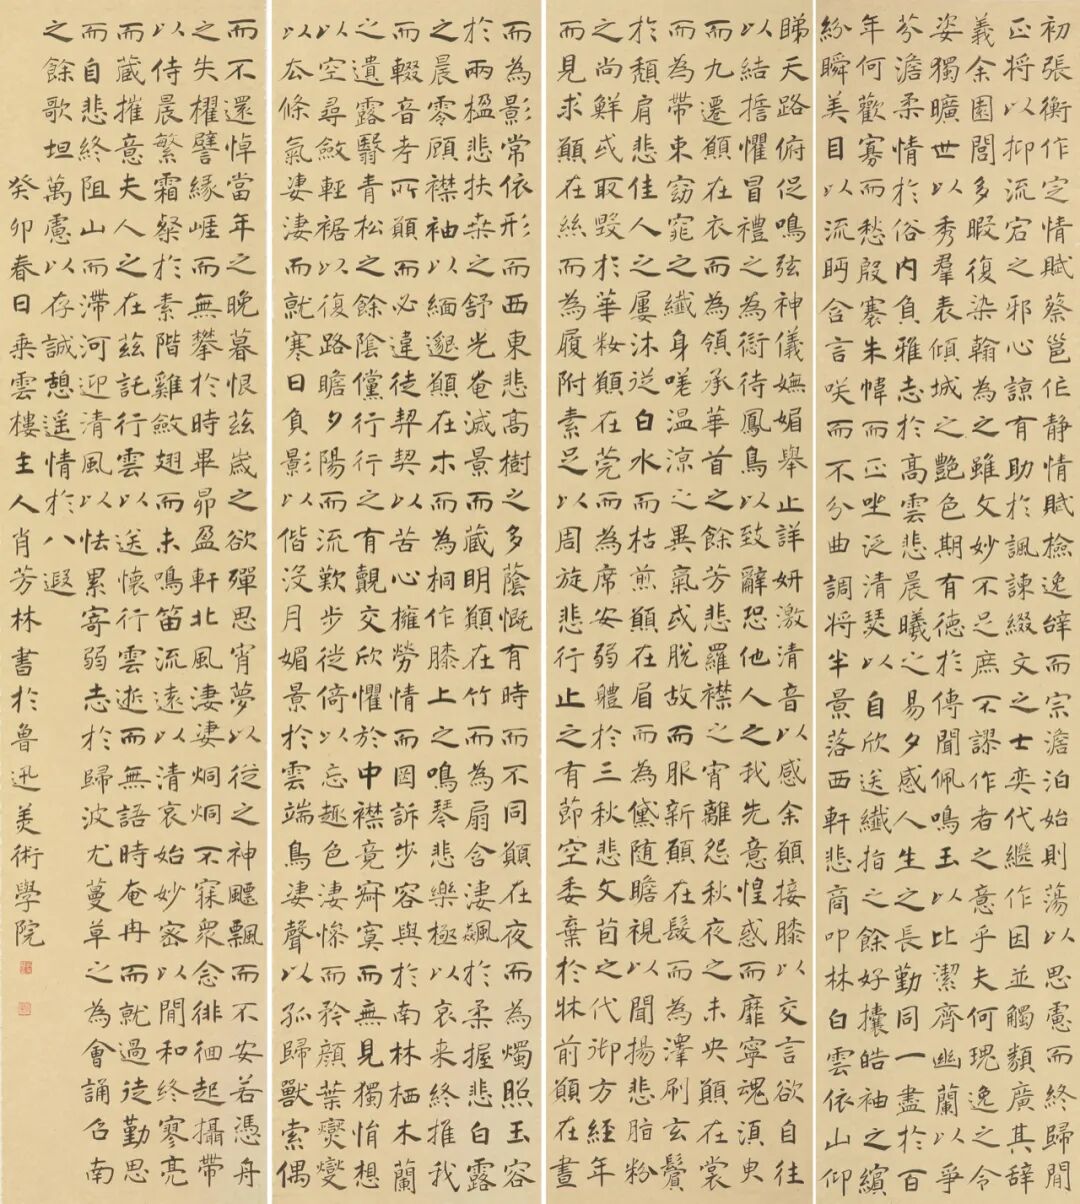 初張衡作定情賦蔡邕作静情賦檢逸辭而宗澹泊始則蕩以思慮而終歸閒
正將以抑流宕之邪心諒有助於諷諫綴文之士奕代繼作因並觸類廣其辭
義余園閭多暇復染翰為之雖文妙不足庶不謬作者之意乎夫何瑰逸之令
姿獨曠世以秀羣表傾城之艷色期有德於傳聞佩鳴玉以比潔齊幽蘭以爭
芬澹柔情於俗內負雅志於高雲悲晨曦之易夕感人生之長勤同一盡於百
年何歡寡而愁殷褰朱幃而正坐泛清瑟以自欣送纖指之餘好攘皓袖之繽
紛瞬美目以流眄含言咲而不分曲調將半景落西軒悲商叩林白雲依山仰
睇天路俯促鳴弦神儀嫵媚舉止詳妍激清音以感余願接膝以交言欲自往
以結擔懼冒禮之為愆待鳳鳥以致辭恐他人之我先意惶惑而靡寧魂湏臾
而九遷願在衣而為領承華首之餘芳悲羅襟之宵離怨秋夜之未央願在裳
而為帶束窈窕之纖身嗟温涼之異氣或脫故而服新願在髮而為澤刷玄鬢
於頹肩悲佳人之屢沐從白水而枯煎願在眉而為黛随瞻視以閒揚悲脂粉
之尚鮮或取毀於華粧願在莞而為席安弱體於三秋悲文茵之代御方經年
而見求願在絲而為履附素足以周旋悲行止之有節空委棄於牀前願在晝
而為影常依形而西東悲高樹之多蔭慨有時而不同願在夜而為燭照玉容
於兩楹悲扶桒之舒光奄滅景而藏明願在竹而為扇含淒飆於柔握悲白露
之晨零顧襟袖以緬邈願在木而為桐作膝上之鳴琴悲樂極以哀来終推我
而輟音考所願而必違徒契契以苦心擁勞情而罔訴步容與於南林栖木蘭
之遺露翳青松之餘陰儻行行之有覿交欣懼於中襟竟寂寞而無見獨悁想
以空尋斂輕裾以復路瞻夕陽而流歎步徙倚以忘趣色淒慘而矜顏葉燮燮
以去條氣淒淒而就寒日負影以偕没月媚景於雲端鳥淒聲以孤歸獸索偶
而不還悼當年之晚暮恨茲歲之欲殫思宵夢以從之神飄飄而不安若憑舟
之失櫂譬緣崖而無攀於時畢昴盈軒北風淒淒炯炯不寐衆念徘徊起攝帶
以侍晨繁霜粲於素階雞斂翅而未鳴笛流遠以清哀始妙密以閒和終寥亮
而藏摧意夫人之在茲託行雲以送懷行雲逝而無語時奄冉而就過徒勤思
而自悲終阻山而滯河迎清風以怯累寄弱志於歸波尤蔓草之為會誦召南
之餘歌坦萬慮以存誠憩遥情於八遐
癸卯春日乘雲樓主人肖芳林書於魯迅美術學院